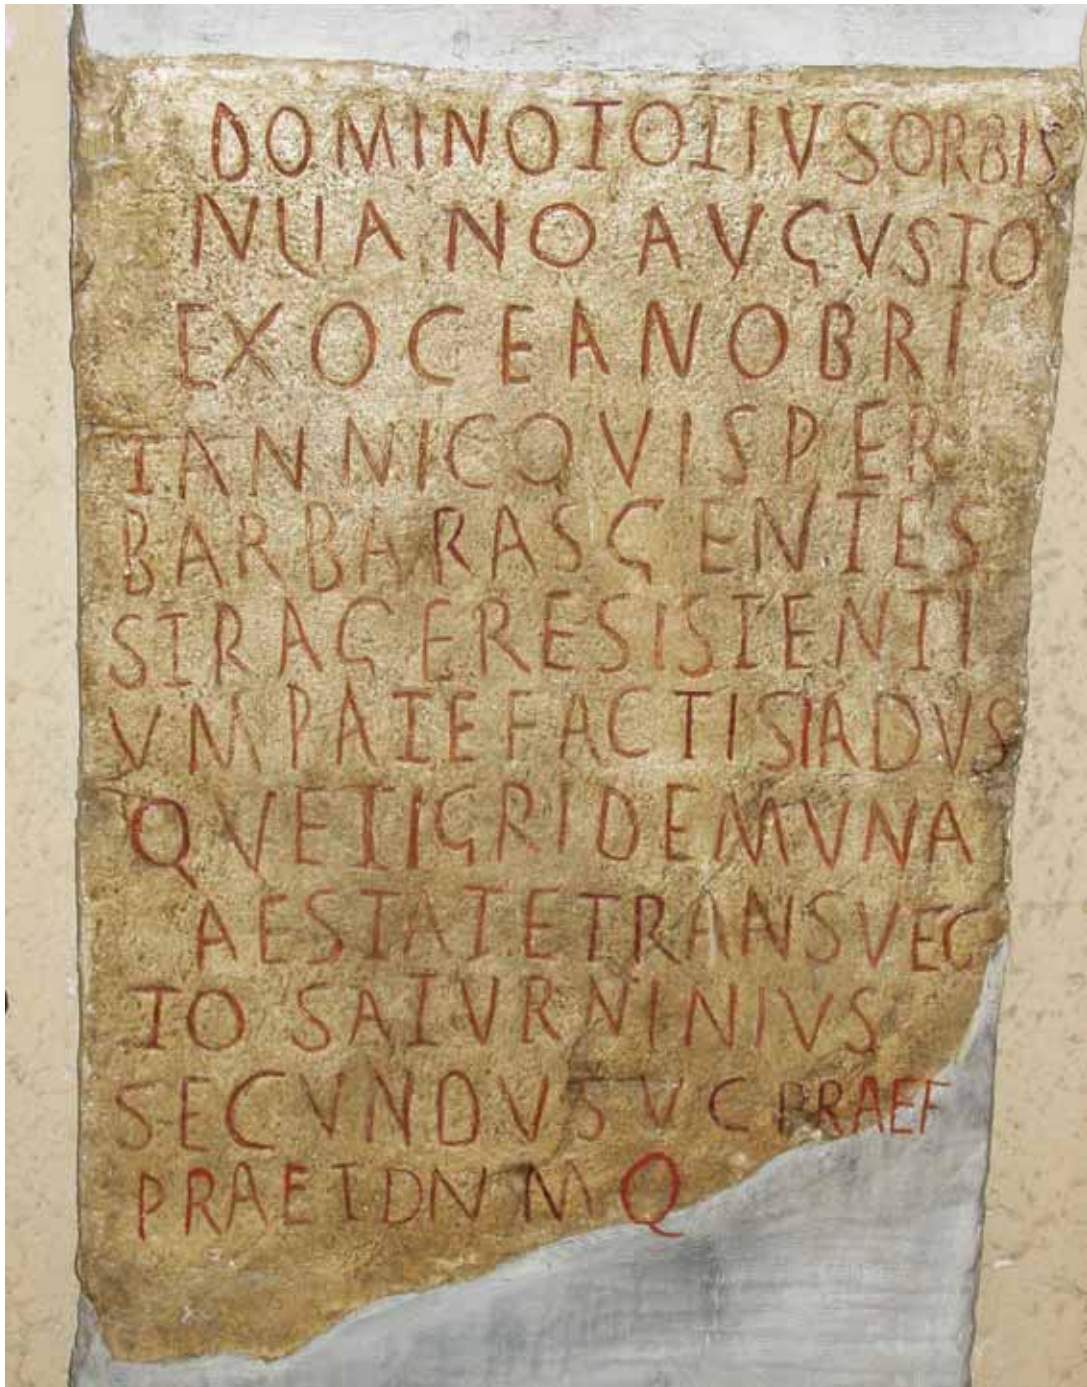 DOMINO TOTIVS ORBIS
IVLIANO AVGVSTO
EX OCEANO BRI
TANNICO VIS PER
BARBARAS GENTES
STRAGE RESISTENTI
VM PATEFACTIS ADVS
QVE TIGRIDEM VNA
AESTATE TRANSVEC
TO SATVRNINIVS
SECVNDVS V C PRAEF
PRAET D N M Q